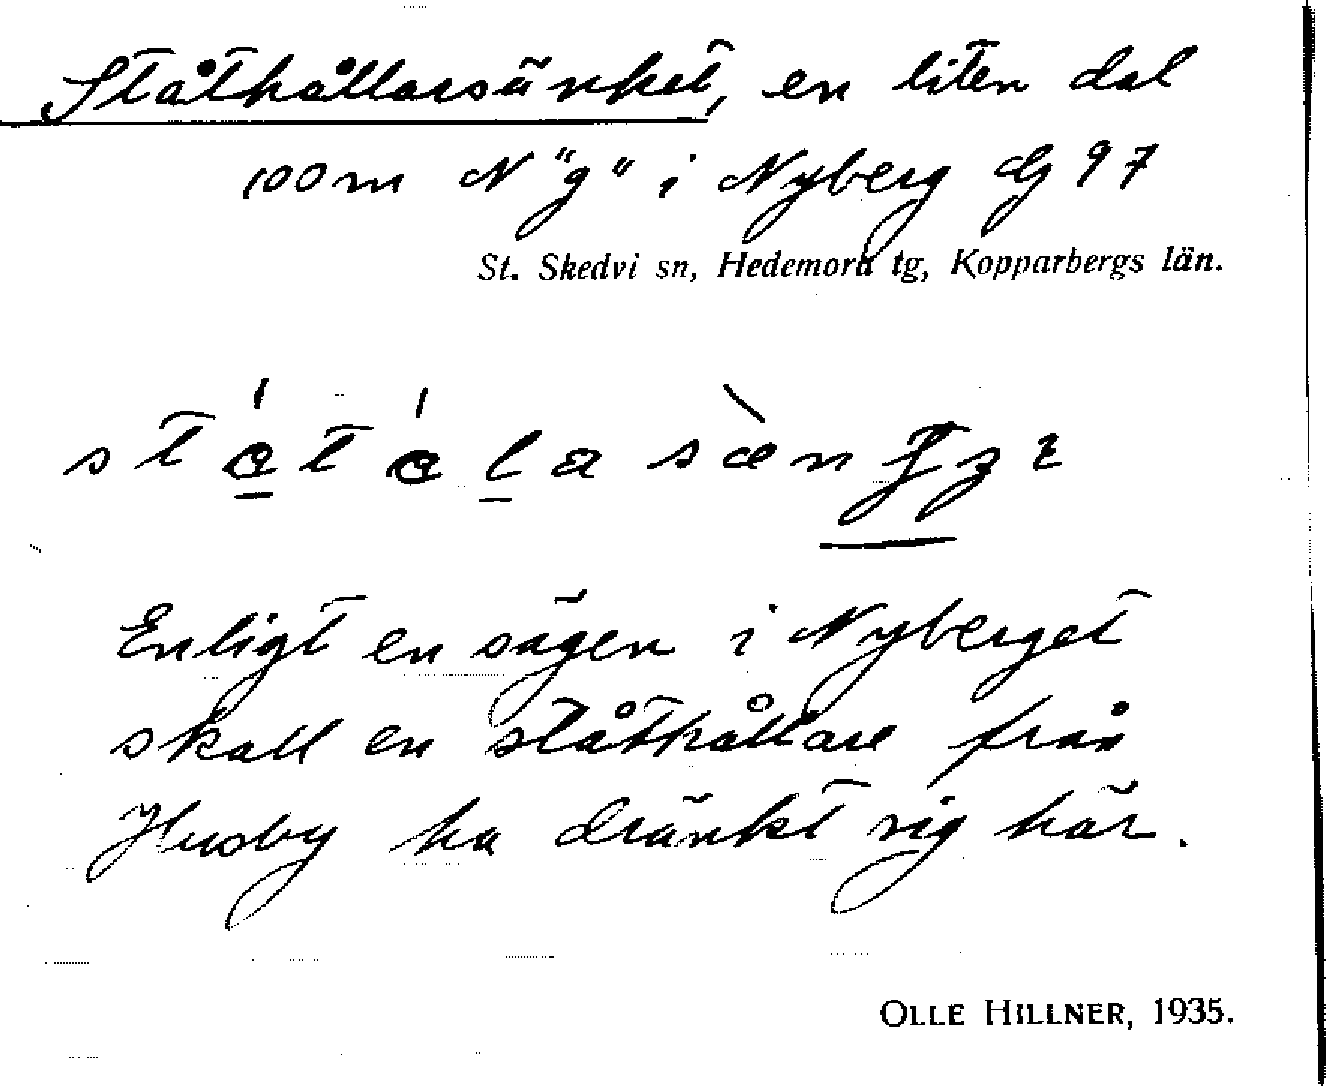 Ståthållarsänket, en liten dal
100 m N "g" i Nyberg dG 97
St. Skedvi sn, Hedemora tg, Kopparbergs län.
Enligt en sägen i Nyberget
skall en ståthållare från
Husby ha dränkt sig här.
OLLE HILLNER, 1935.